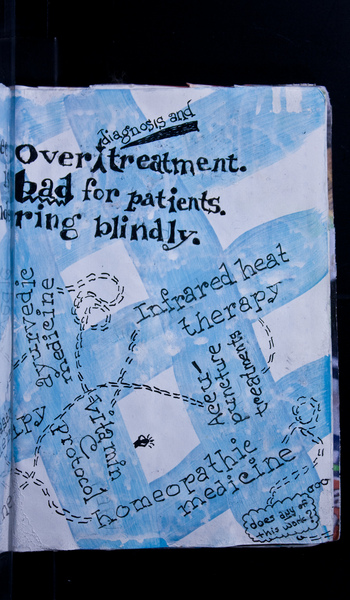 diagnosis and
Over treatment.
bad for patients.
ring blindly.
Infrared heat
therapy
ayurvedic
medicine
Accu-
puncture
treatments
Vitamin
C
Protocol
homeopathic
medicine
does any of
this work?